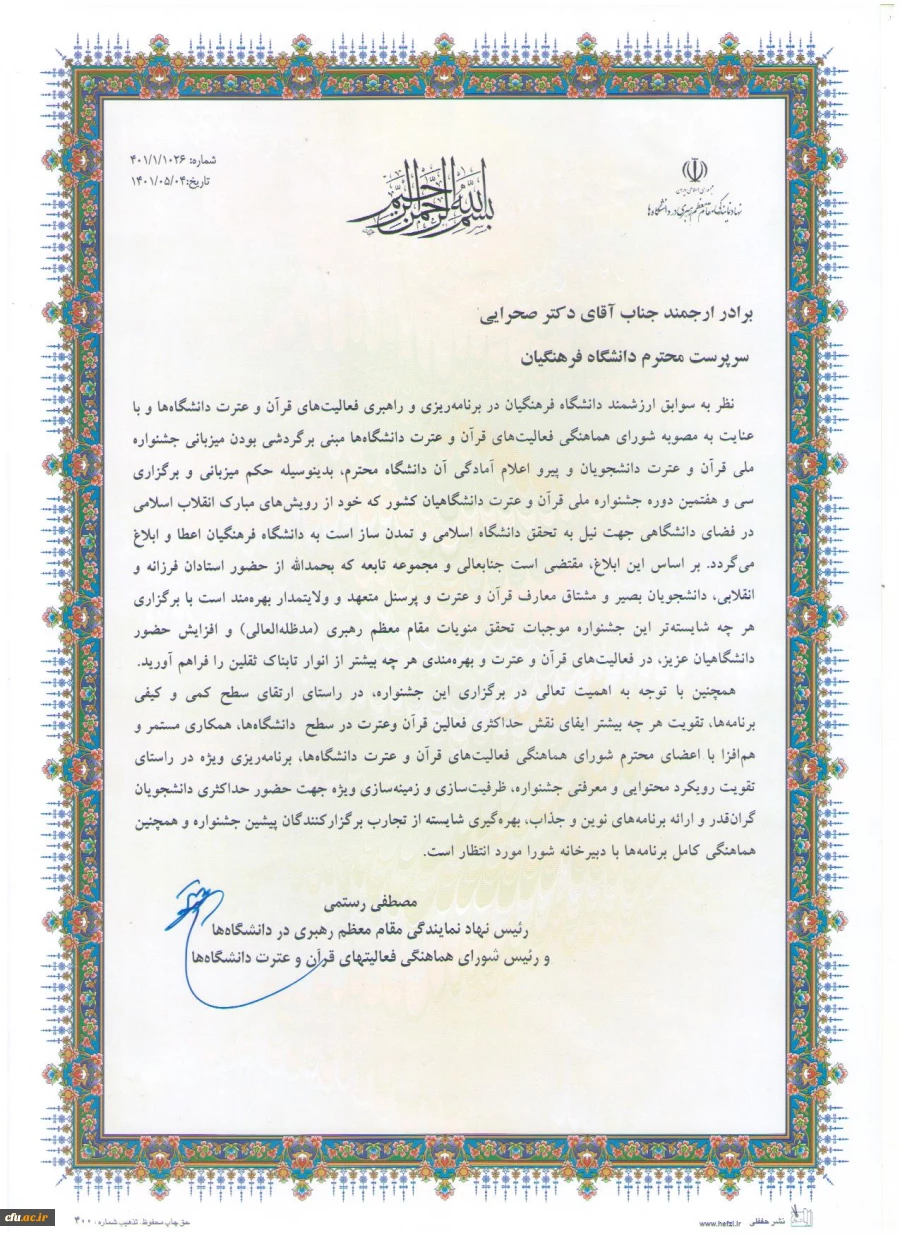 شماره: ۴۰۱/۱/۱۰۲۶
تاریخ:۱۴۰۱/۰۵/۰۴
بسم الله الرحمن الرحیم
جمهوری اسلامی ایران
نهاد نمایندگی مقام معظم رهبری در دانشگاه‌ها
برادر ارجمند جناب آقای دکتر صحرایی
سرپرست محترم دانشگاه فرهنگیان
نظر به سوابق ارزشمند دانشگاه فرهنگیان در برنامه‌ریزی و راهبری فعالیت‌های قرآن و عترت دانشگاه‌ها و با
عنایت به مصوبه شورای هماهنگی فعالیت‌های قرآن و عترت دانشگاه‌ها مبنی برگردشی بودن میزبانی جشنواره
ملی قرآن و عترت دانشجویان و پیرو اعلام آمادگی آن دانشگاه محترم، بدینوسیله حکم میزبانی و برگزاری
سی و هفتمین دوره جشنواره ملی قرآن و عترت دانشگاهیان کشور که خود از رویش‌های مبارک انقلاب اسلامی
در فضای دانشگاهی جهت نیل به تحقق دانشگاه اسلامی و تمدن ساز است به دانشگاه فرهنگیان اعطا و ابلاغ
می‌گردد. بر اساس این ابلاغ، مقتضی است جنابعالی و مجموعه تابعه که بحمدالله از حضور استادان فرزانه و
انقلابی، دانشجویان بصیر و مشتاق معارف قرآن و عترت و پرسنل متعهد و ولایتمدار بهره‌مند است با برگزاری
هر چه شایسته‌تر این جشنواره موجبات تحقق منویات مقام معظم رهبری (مدظله‌العالی) و افزایش حضور
دانشگاهیان عزیز، در فعالیت‌های قرآن و عترت و بهره‌مندی هر چه بیشتر از انوار تابناک ثقلین را فراهم آورید.
همچنین با توجه به اهمیت تعالی در برگزاری این جشنواره، در راستای ارتقای سطح کمی و کیفی
برنامه‌ها، تقویت هر چه بیشتر ایفای نقش حداکثری فعالین قرآن وعترت در سطح دانشگاه‌ها، همکاری مستمر و
هم‌افزا با اعضای محترم شورای هماهنگی فعالیت‌های قرآن و عترت دانشگاه‌ها، برنامه‌ریزی ویژه در راستای
تقویت رویکرد محتوایی و معرفتی جشنواره، ظرفیت‌سازی و زمینه‌سازی ویژه جهت حضور حداکثری دانشجویان
گران‌قدر و ارائه برنامه‌های نوین و جذاب، بهره‌گیری شایسته از تجارب برگزارکنندگان پیشین جشنواره و همچنین
هماهنگی کامل برنامه‌ها با دبیرخانه شورا مورد انتظار است.
مصطفی رستمی
رئیس نهاد نمایندگی مقام معظم رهبری در دانشگاه‌ها
و رئیس شورای هماهنگی فعالیتهای قرآن و عترت دانشگاه‌ها
نشر حفظی www.hefzi.ir
حق چاپ محفوظ. تذهیب شماره: ۴۰۰
cfu.ac.ir